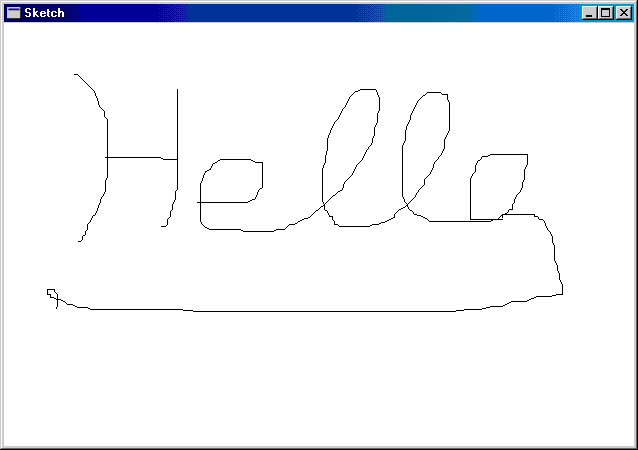 Sketch
Hello